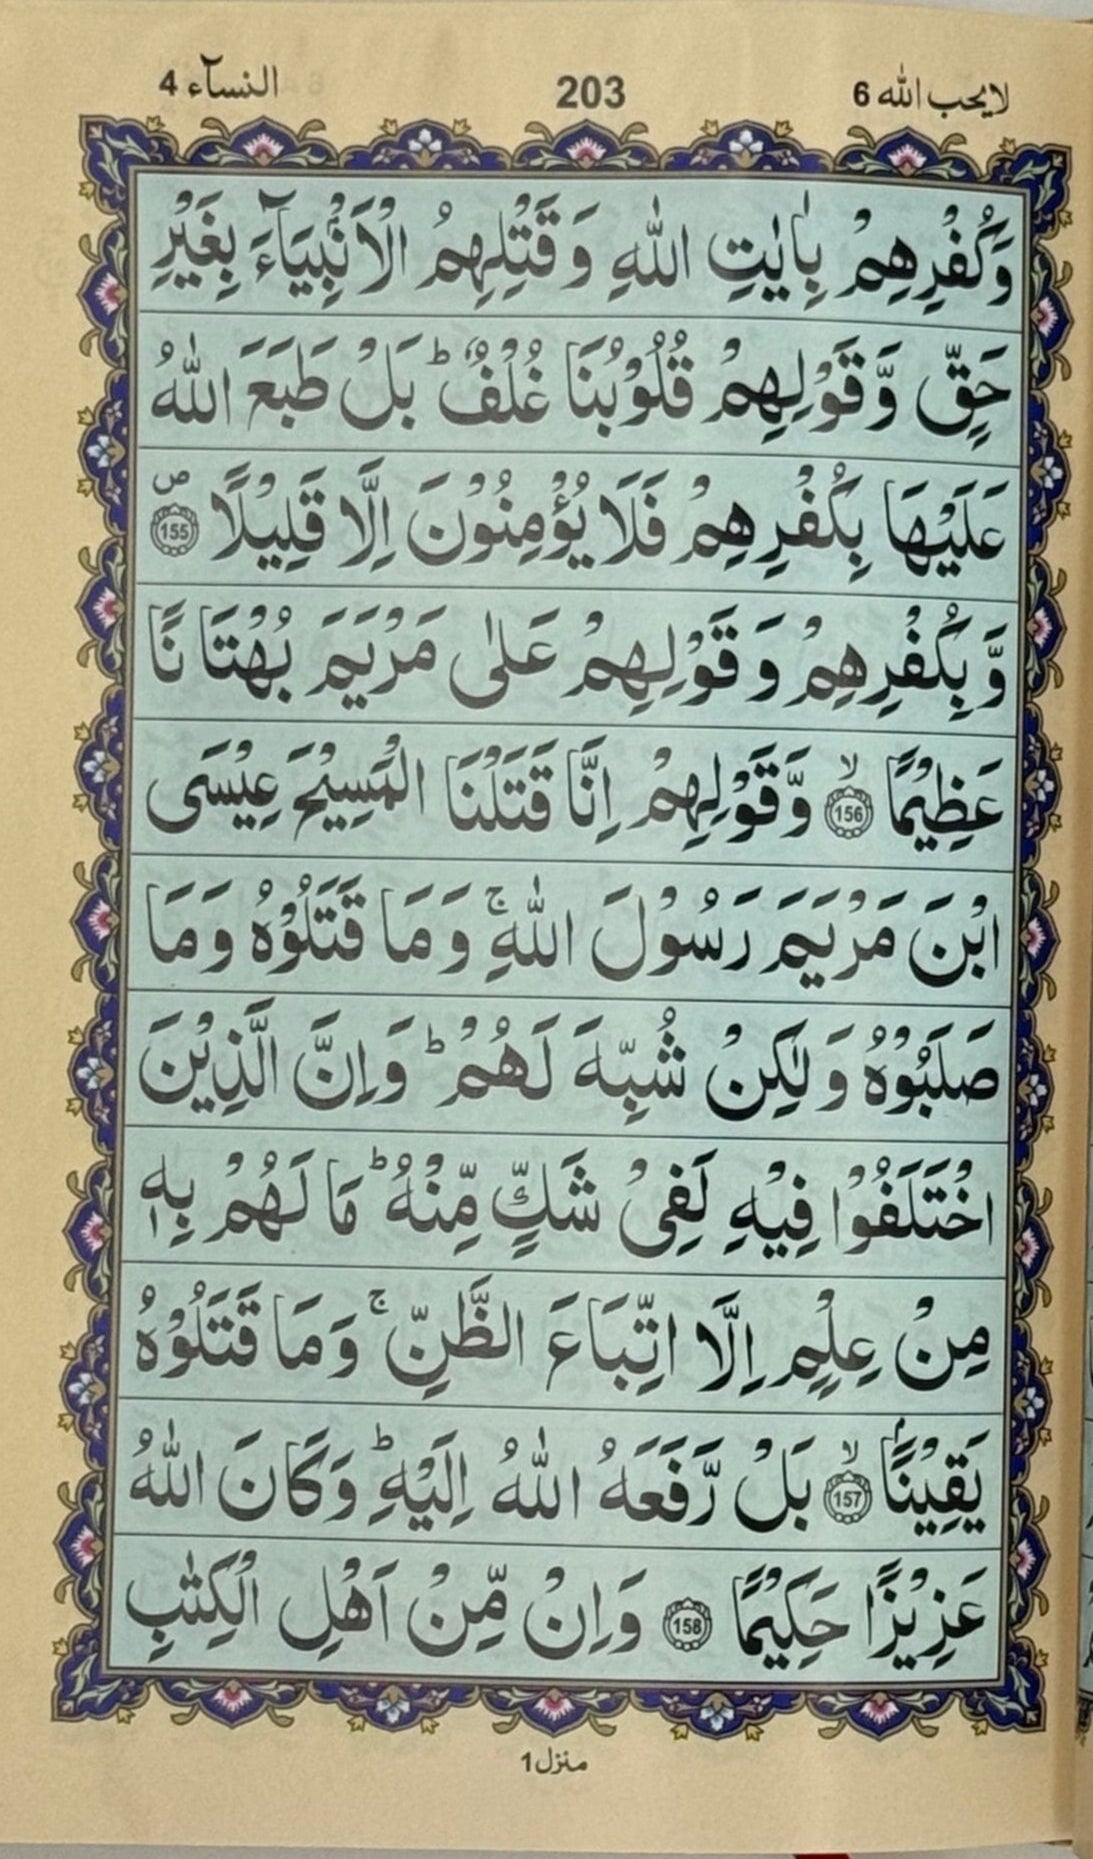 لايحب الله 6 203 النسآء 4
وَكُفْرِهِمْ بِاٰيٰتِ اللّٰهِ وَ قَتْلِهِمُ الْاَنْۢبِيَآءَ بِغَيْرِ
حَقٍّ وَّ قَوْلِهِمْ قُلُوْبُنَا غُلْفٌ ؕ بَلْ طَبَعَ اللّٰهُ
عَلَيْهَا بِكُفْرِهِمْ فَلَا يُؤْمِنُوْنَ اِلَّا قَلِيْلًا ۪ 155
وَّ بِكُفْرِهِمْ وَ قَوْلِهِمْ عَلٰى مَرْيَمَ بُهْتَانًا
عَظِيْمًا ۙ 156 وَّ قَوْلِهِمْ اِنَّا قَتَلْنَا الْمَسِيْحَ عِيْسَى
ابْنَ مَرْيَمَ رَسُوْلَ اللّٰهِ ۚ وَ مَا قَتَلُوْهُ وَ مَا
صَلَبُوْهُ وَ لٰكِنْ شُبِّهَ لَهُمْ ؕ وَ اِنَّ الَّذِيْنَ
اخْتَلَفُوْا فِيْهِ لَفِيْ شَكٍّ مِّنْهُ ؕ مَا لَهُمْ بِهٖ
مِنْ عِلْمٍ اِلَّا اتِّبَاعَ الظَّنِّ ۚ وَ مَا قَتَلُوْهُ
يَقِيْنًۢا ۙ 157 بَلْ رَّفَعَهُ اللّٰهُ اِلَيْهِ ؕ وَ كَانَ اللّٰهُ
عَزِيْزًا حَكِيْمًا 158 وَ اِنْ مِّنْ اَهْلِ الْكِتٰبِ
منزل 1